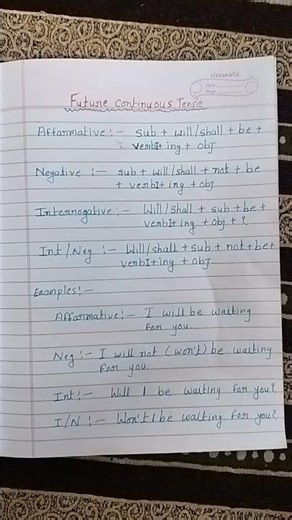 classmate
Date
Page
Future Continuous Tense
Affarmative :- sub + will/shall + be +
verbI+ ing + obj
Negative :- sub + will/shall + not + be
+ verbI+ ing + obj
Interrogative :- Will/shall + sub + be +
verbI+ ing + obj + ?
Int/Neg :- Will/shall + sub + not + be +
verbI+ ing + obj
Examples :-
Affarmative :- I will be waiting
for you.
Neg :- I will not (won't) be waiting
for you.
Int :- Will I be waiting for you?
I/N :- Won't I be waiting for you?